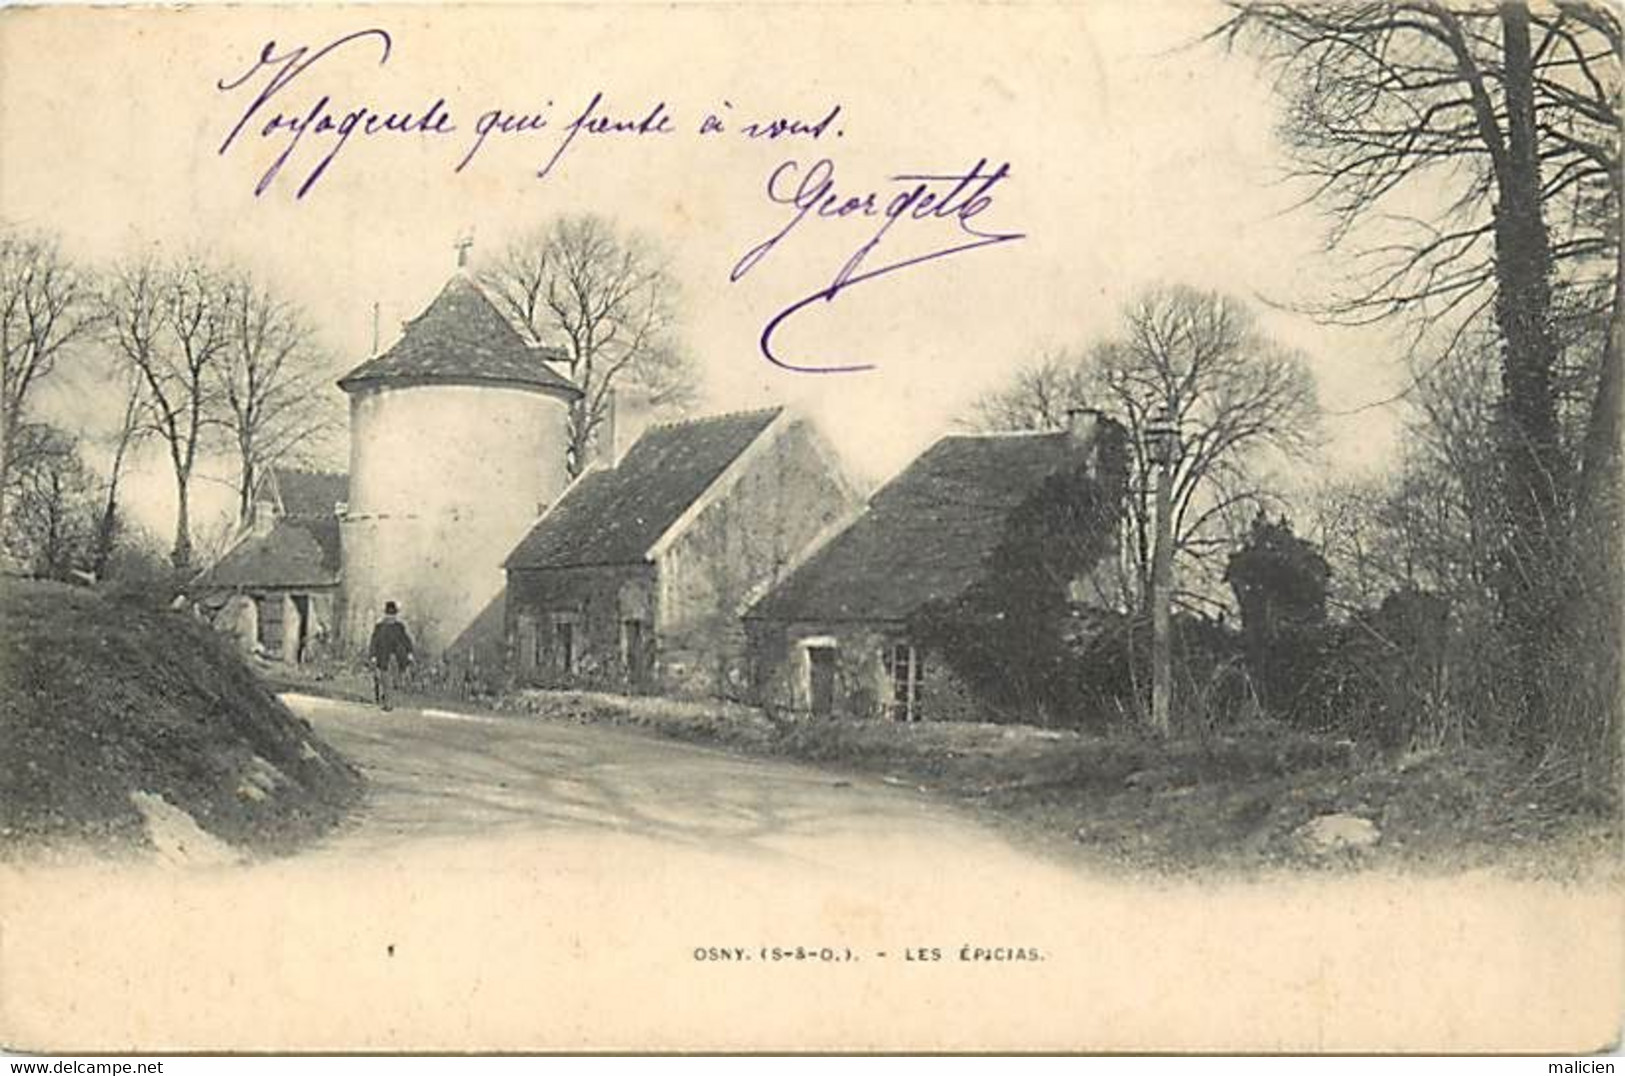 Voyageuse qui pense à vous.
Georgette
OSNY. (S-&-O.). - LES ÉPICIAS.
© delcampe.net
malicien